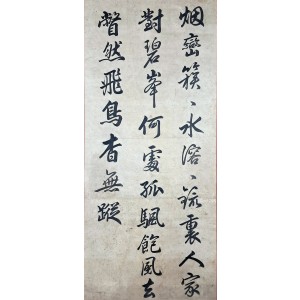 烟巒簇〻水溶〻鏡裏人家
對碧峯何處孤颿飽風去
瞥然飛鳥杳無蹤